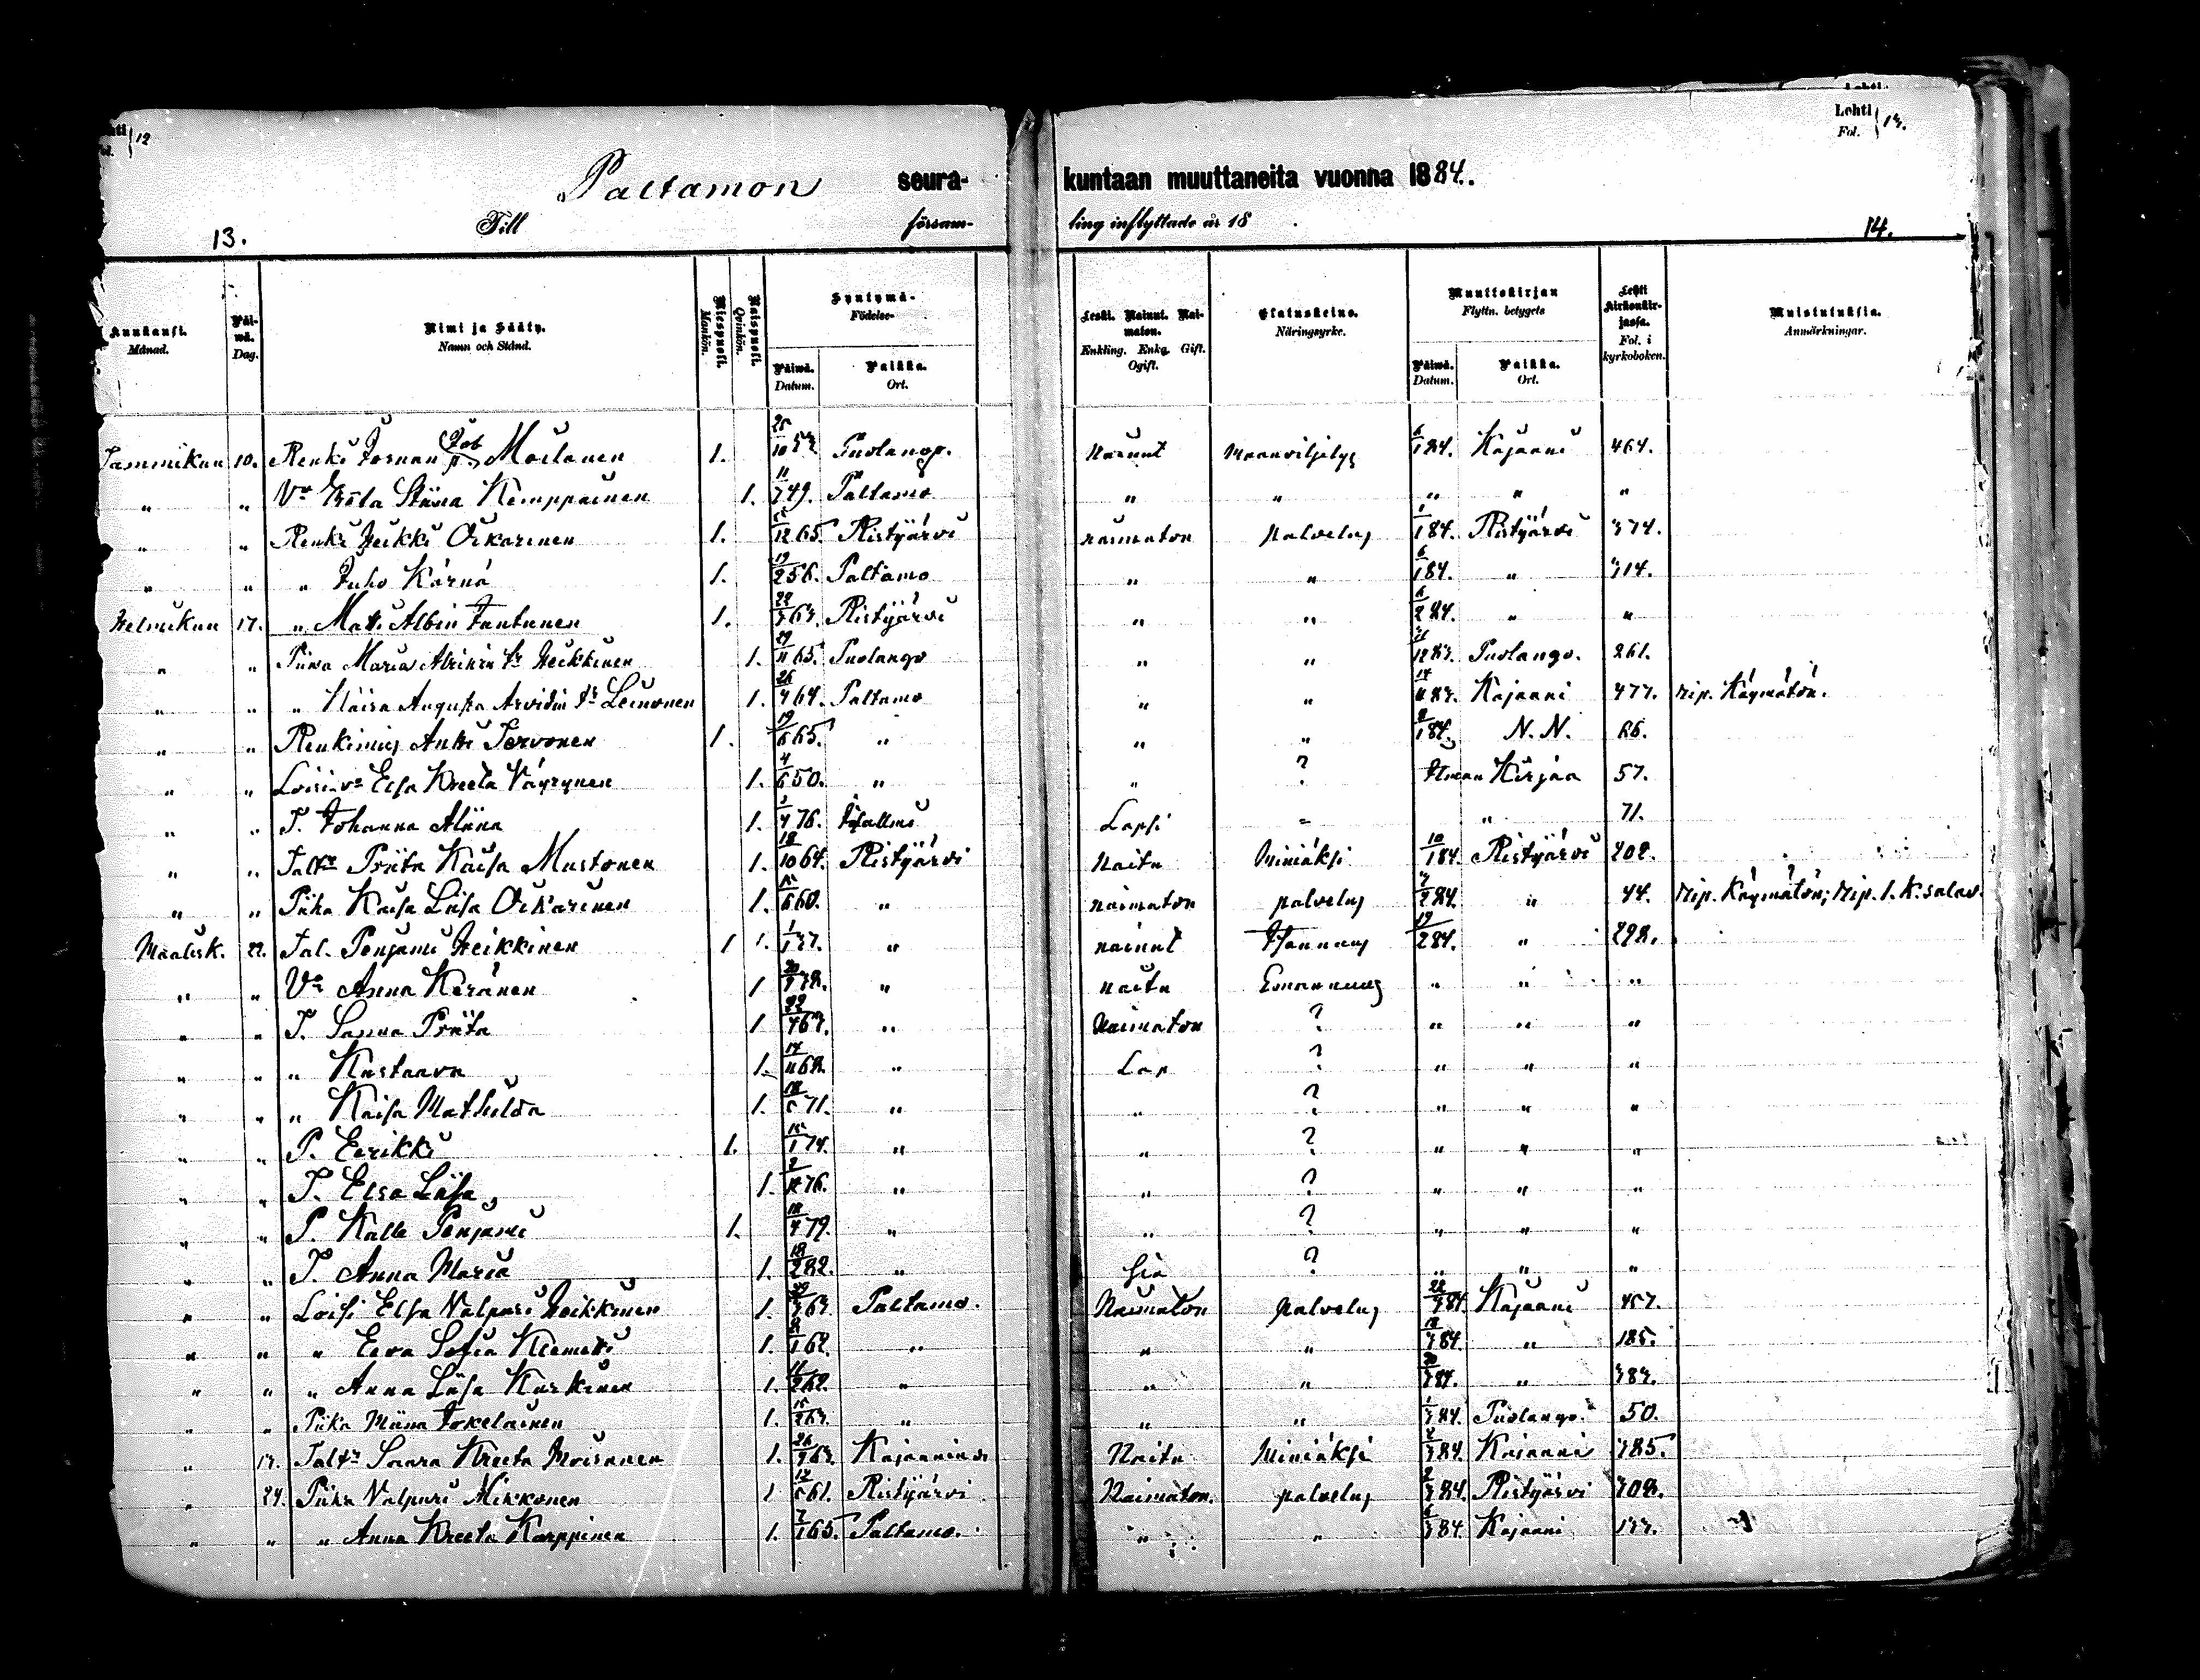 Lehti Fol. 12
Lehti
Lehti Fol. 13.
Paltamon seura- kuntaan muuttaneita vuonna 1884.
Till försam- ling inflyttade år 18
13. 14.
Kuukausi. Månad. Päi-wä. Dag. Nimi ja Sääty. Namn och Stånd. Miespuoli. Mankön. Naispuoli. Qvinkön. Syntymä- Födelse- Päiwä. Datum. Paikka. Ort. Leski. Nainut. Nai-maton. Enkling. Enka. Gift. Ogift. Elatuskeino. Näringsyrke. Muuttokirjan Flyttn. betygets Päiwä. Datum. Paikka. Ort. Lehti kirkonkir-jassa. Fol. i kyrkoboken. Muistutuksia. Anmärkningar.
Tammikuu 10. Renki Joonan Job p. Moilanen 1. 25/10 53 Puolango. Nainut Maanviljelys 6/1 84. Kajaani 464.
" " Vo Stiina Kemppainen 1. 11/7 49. Paltamo " " " " "
" " Renki Heikki Oikarinen 1. 12 65. Ristijärvi naimaton palvelus 1/1 84. Ristijärvi 374.
" " " Juho Kärnä 1. 19/2 56. Paltamo " " 6/1 84. " 314.
Helmikuu 17. " Matti Albin Tantunen 1. 22/3 63. Ristijärvi " " 6/2 84. " "
" " Piika Maria Heikkinen 1. 29/11 65. Puolango " " 12 83. Puolango. 261.
" " " Augusta Arvidin tr Leinonen 1. 26/4 64. Paltamo " " 14/11 83. Kajaani 477. rip. Käymätön.
" " Renkimies Antti Tervonen 1. 19/6 65. " " " 2/1 84. N. N. 66.
" " Loisivo Elsa Kreeta Väyrynen 1. 4/6 50. " " ? Ilman Kirjaa 57.
" " T. Johanna Aliina 1. 4 76. Lapsi " 71.
" " Taltr Priita Kaisa Mustonen 1. 18/10 64. Ristijärvi Naitu Miniäksi 10/1 84. Ristijärvi 202.
" " Piika Kaisa Liisa Oikarinen 1. 15/6 60. " naimaton palvelus 7/2 84. " 44. Rip. Käymätön; Rip. l. k. salav.
Maalisk. 22. Tal. Penjami Heikkinen 1 1. 1/1 37. " nainut Isännyys 19/2 84. " 298.
" " Vo Anna Keränen 1 30/7 38. " naitu Emännyys " " "
" " T. Sanna Priita 1 22/4 63. " Naimaton ? " " "
" " " Kustaava 1. 14/11 68. " Lap ? " " "
" " " Kaisa Mathilda 1. 18/5 71. " " ? " " "
" " P. Eerikki 1. 15/1 74. " " ? " " "
" " T. Elsa Liisa 1. 2/12 76. " " ? " " "
" " P. Kalle Penjami 1. 18/4 79. " " ? " " "
" " T. Anna Maria 1. 18/2 82. " sia ? " " "
" " Loisi Elsa Valpuri Heikkinen 1. 3 63. Paltamo. Naimaton palvelus 22/2 84. Kajaani 457.
" " " Eeva Sofia Klemetti 1. 1 62. " " " 18/3 84. " 185.
" " " Anna Liisa Karkinen 1. 11/2 62. " " " 20/3 84. " 383.
" " Piika Miina Jokelainen 1. 15/2 63. " " " 1/3 84. Puolango. 50.
" 13. Taltr Saara Kreeta Moisanen 1. 26/9 63. Kajaanin Naitu Miniäksi 2/3 84. Kajaani 385.
" 24. Piika Valpuri Mikkonen 1 12/5 61. Ristijärvi Naimaton. palvelus 2/3 84. Ristijärvi 308.
" " " Anna Kreeta Karppinen 1. 7/1 65. Paltamo. " " 6/3 84. Kajaani 133.